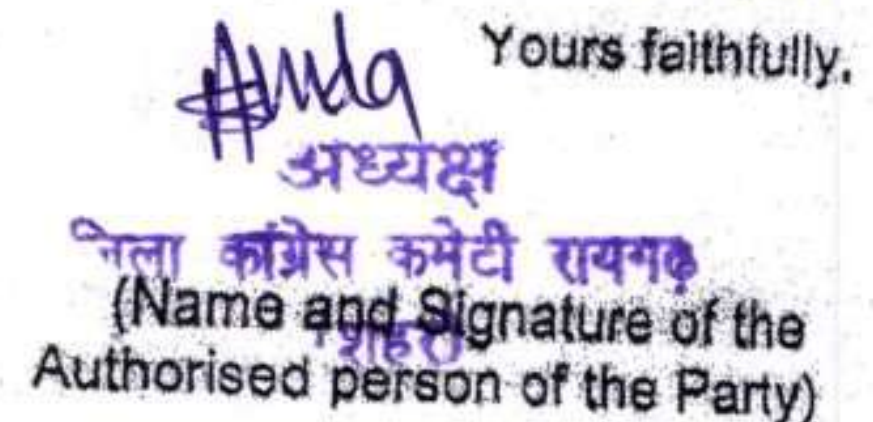 Yours faithfully,
अध्यक्ष
जिला कांग्रेस कमेटी रायगढ़
(Name and Signature of the
शहरी
Authorised person of the Party)